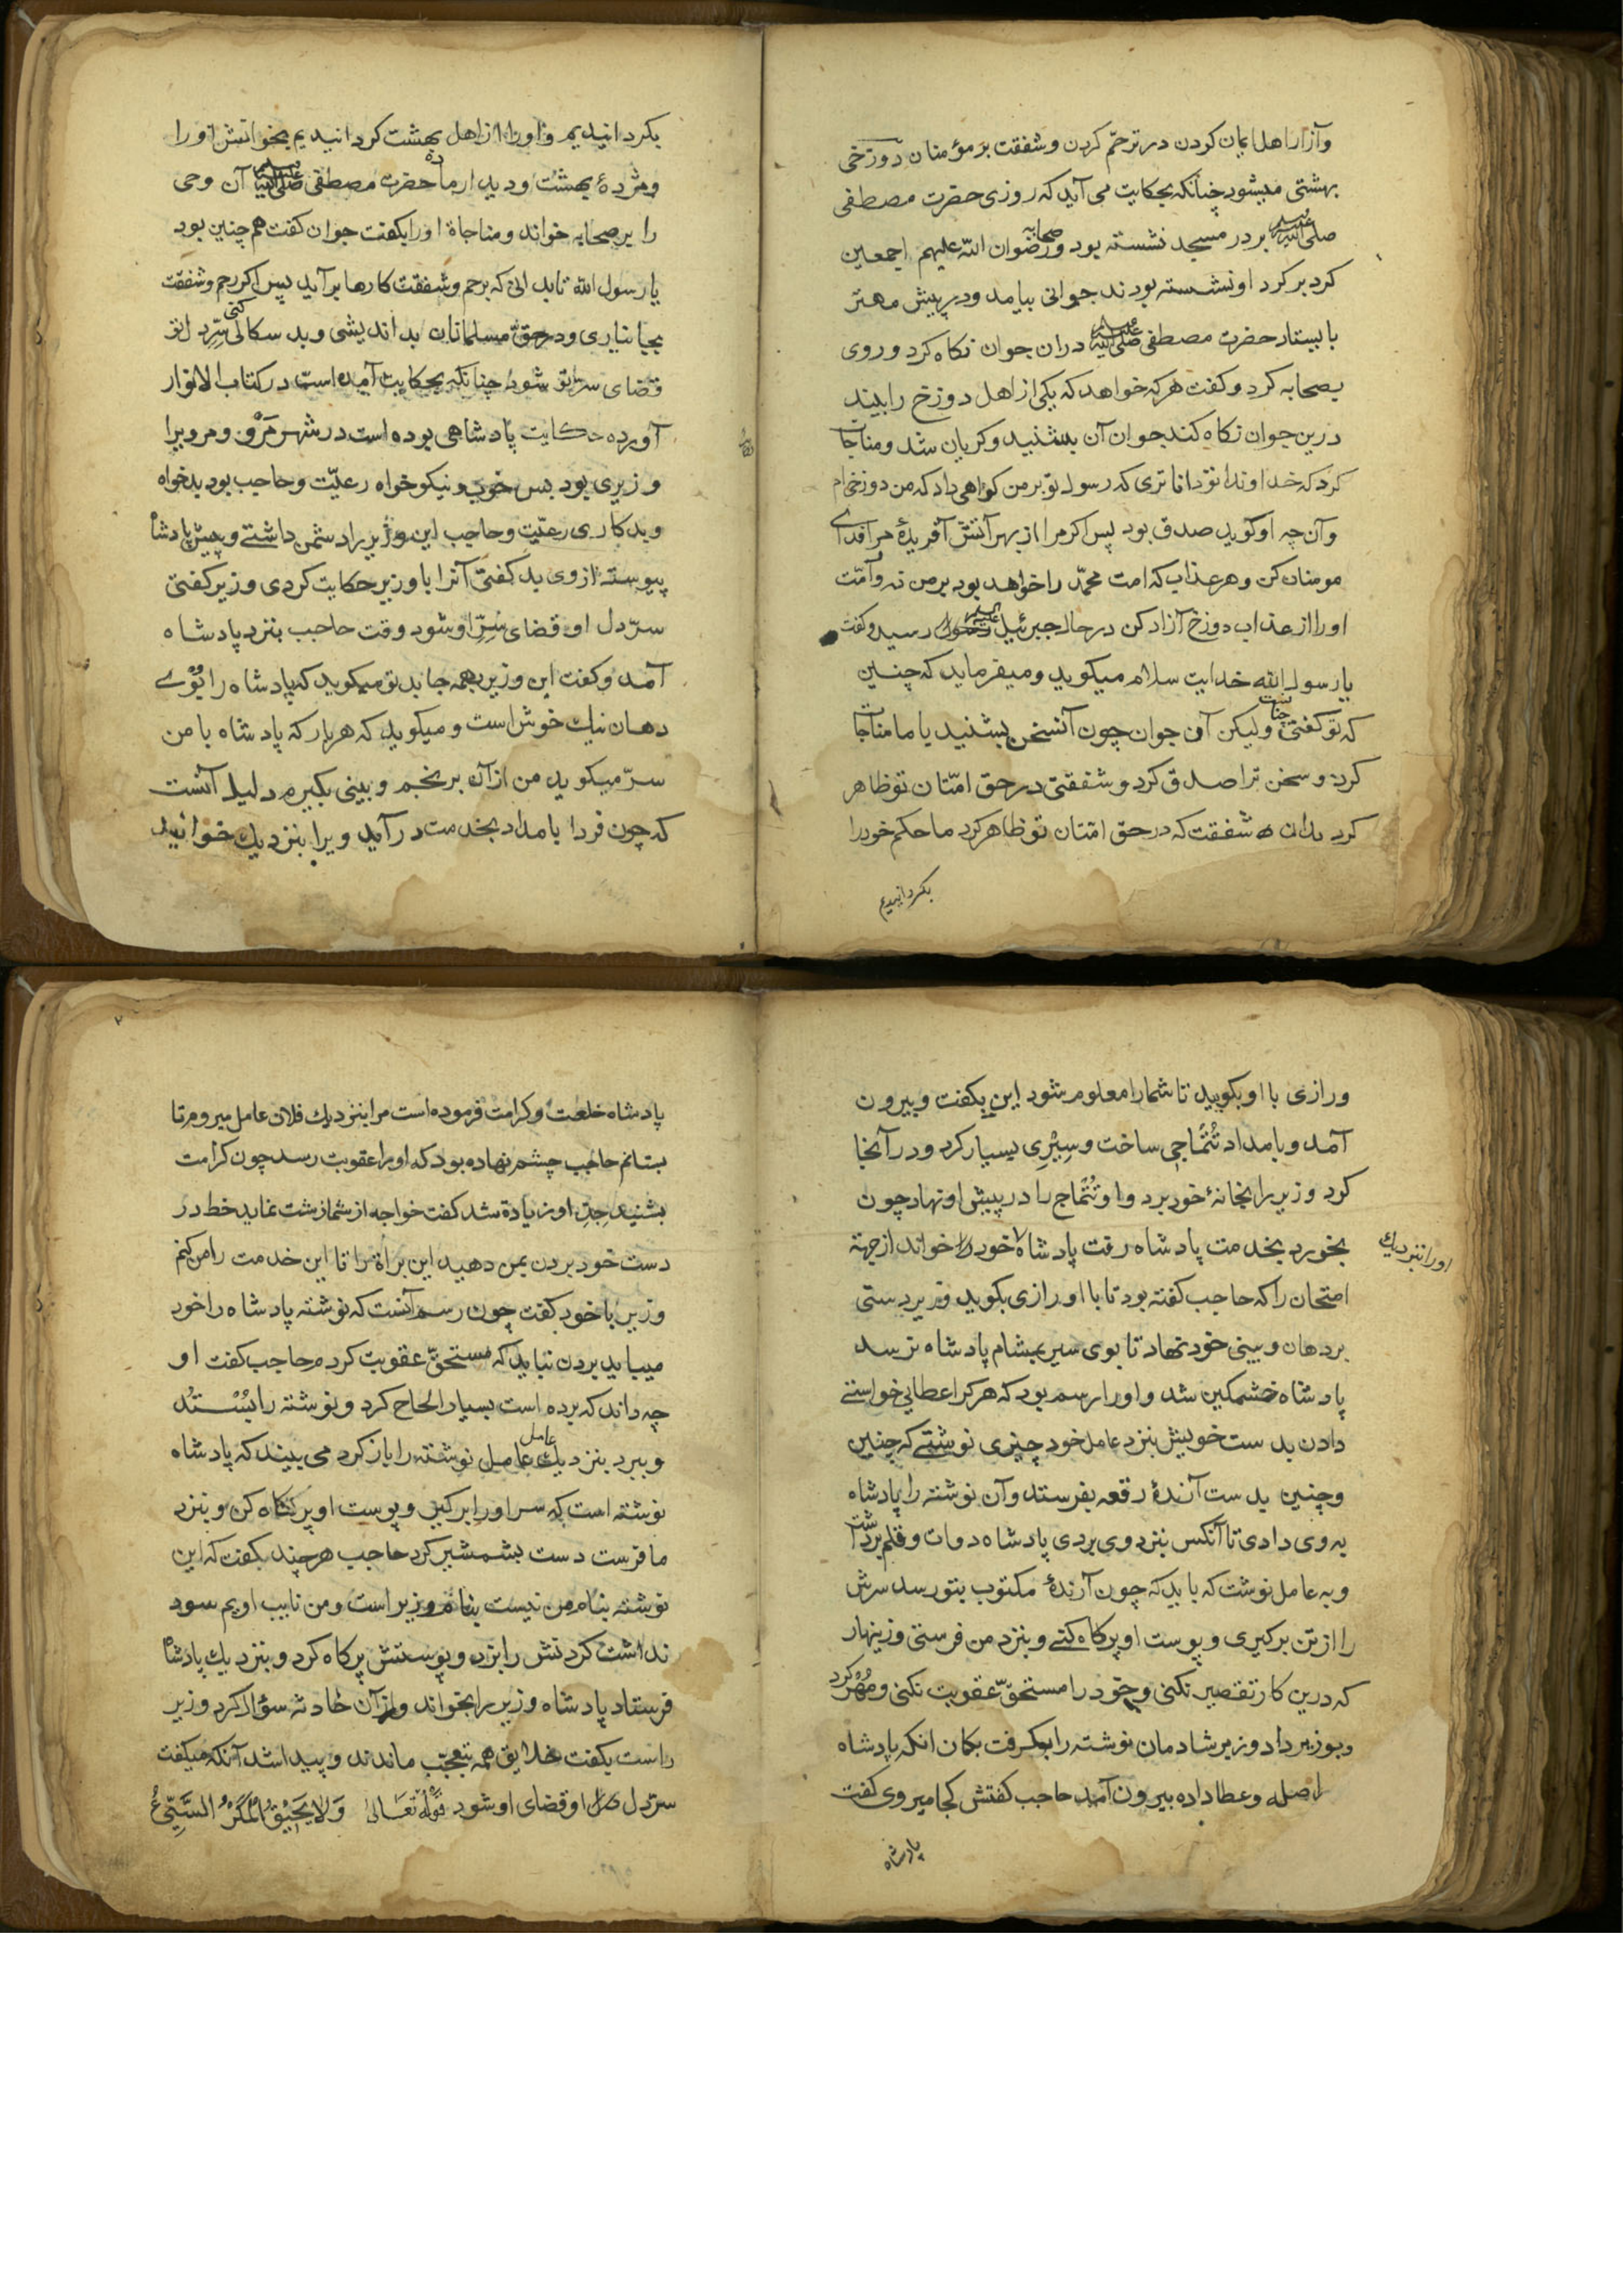 وآزار اهل ایمان کردن در ترحّم کردن و شفقت بر مؤمنان دوزخی
بهشتی میشود چنانکه بحکایت می آید که روزی حضرت مصطفی
صلی الله علیه وسلم بر در مسجد نشسته بود و صحابه رضوان الله علیهم اجمعین
کرد بر کرد او نشسته بودند جوانی بیامد و در پیش مهتر
بایستاد حضرت مصطفی صلی الله علیه وسلم دران جوان نکاه کرد و روی
بصحابه کرد و کفت هر که خواهد که یکی از اهل دوزخ را بیند
درین جوان نکاه کند جوان آن بشنید و کریان شد و مناجات
کرد که خداوندا تو داناتری که رسول تو بر من کواهی داد که من دوزخی ام
وآن چه او کوید صدق بود پس اکر مرا از بهر آتش آفریدهٔ مرا فدای
مومنان کن و هر عذاب که امت محمّد را خواهد بود بر من نه و امّت
اورا از عذاب دوزخ آزاد کن در حال جبرئیل علیه السلام رسید و کفت
یا رسول الله خدایت سلام میکوید و میفرماید که چنین
که تو کفتی چنانست ولیکن آن جوان چون آنسخن بشنید با ما مناجات
کرد و سخن ترا صدق کرد و شفقتی در حق امّتان تو ظاهر
کرد بدان شفقت که در حق امّتان تو ظاهر کرد ما حکم خودرا
بکردانیدیم
بکردانیدیم و اورا از اهل بهشت کردانیدیم بخوانش اورا
ومژدهٔ بهشت و دیدار ما ده حضرت مصطفی صلی الله علیه وسلم آن وحی
را بر صحابه خواند و مناجاة اورا بکفت جوان کفت همچنین بود
یا رسول الله تا بدانی که برحم و شفقت کارها برآید پس اکر رحم و شفقت
بجا نیاری و در حقّ مسلمانان بداندیشی و بد سکالی کنی سرّ دل تو
قضای سر تو شود چنانکه بحکایت آمده است در کتاب الانوار
آورده حکایت پادشاهی بوده است در شهر مَرْو و مرویرا
وزیری بود بس خوب و نیکو خواه رعیّت و حاجب بود بدخواه
و بدکاری رعیّت و حاجب این وزیر را دشمن داشتے و پیش پادشاه
پیوسته از وی بد کفتی آنرا با وزیر حکایت کردی وزیر کفتی
سرّ دل او قضای سَرِ او شود وقت حاجب بنزد پادشاه
آمد و کفت این وزیر بهمه جا بد تو میکوید که پادشاه را بُوْے
دهان نیک خوش است و میکوید که هر بار که پادشاه با من
سرّ میکوید من از آن برنجم و بینی بکیرم دلیل آنست
که چون فردا بامداد بخدمت درآید ویرا بنزدیک خوانید
ورازی با او بکویید تا شمارا معلوم شود این بکفت و بیرون
آمد و بامداد تُتُمَاجی ساخت و سِیْرِی بسیار کرد و در آنجا
کرد وزیر را بخانهٔ خود برد و او تُتُماج را در پیش او نهاد چون
بخورد بخدمت پادشاه رفت پادشاه خود خواند از جهة
اورا بنزدیک
امتحان را که حاجب کفته بود تا با او رازی بکوید وزیر دستی
بر دهان و بینی خود نهاد تا بوی سیر بمشام پادشاه نرسد
پادشاه خشمکین شد و اورا رسم بود که هر کرا عطایی خواستے
دادن بدست خویش بنزد عامل خود چیزی نوشتے که چنین
و چنین بدست آرندهٔ رقعه بفرستد و آن نوشته را پادشاه
به وی دادی تا آنکس بنزد وی بردی پادشاه دوات و قلم برداشت
و به عامل نوشت که باید که چون آرندهٔ مکتوب بتو رسد سرش
را از تن برکیری و پوست او پر کاه کنے و بنزد من فرستی و زینهار
که درین کار تقصیر نکنی و خود را مستحقّ عقوبت نکنی و مُهْر کرد
و بوزیر داد وزیر شادمان نوشته را بکرفت بکمان انکه پادشاه
را صله و عطا داده بیرون آمد حاجب کفتش کجا میروی کفت
پادشاه
پادشاه خلعت و کرامت فرموده است مرا بنزدیک فلان عامل میروم تا
بستانم حاجب چشم نهاده بود که او را عقوبت رسد چون کرامت
بشنید جِدِّ او زیادة شد کفت خواجه از شما زشت نماید خط در
دست خود بردن بمن دهید این براة را تا این خدمت را من کنم
وزیر با خود کفت چون رسم آنست که نوشته پادشاه را خود
میباید بردن نباید که مستحقّ عقوبت کردم حاجب کفت او
چه داند که برده است بسیار الحاح کرد و نوشته را بِسْتَد
و ببرد بنزدیک عامل عامل نوشته را باز کرد می بیند که پادشاه
نوشته است که سر اورا برکیر و پوست او پر کاه کن و بنزد
ما فرست دست بشمشیر کرد حاجب هر چند بکفت که این
نوشته بنام من نیست بنام وزیر است و من نایب اویم سود
نداشت کردنش را بزد و پوستش پر کاه کرد و بنزدیک پادشاه
فرستاد پادشاه وزیر را بخواند و از آن حادثه سؤال کرد وزیر
راست بکفت خلایق همه بتعجّب ماندند و پیدا شد آنکه میکفت
سرّ دل او قضای او شود قوله تعالی وَلَا یَحِیْقُ الْمَکْرُ السَّیِّئُ